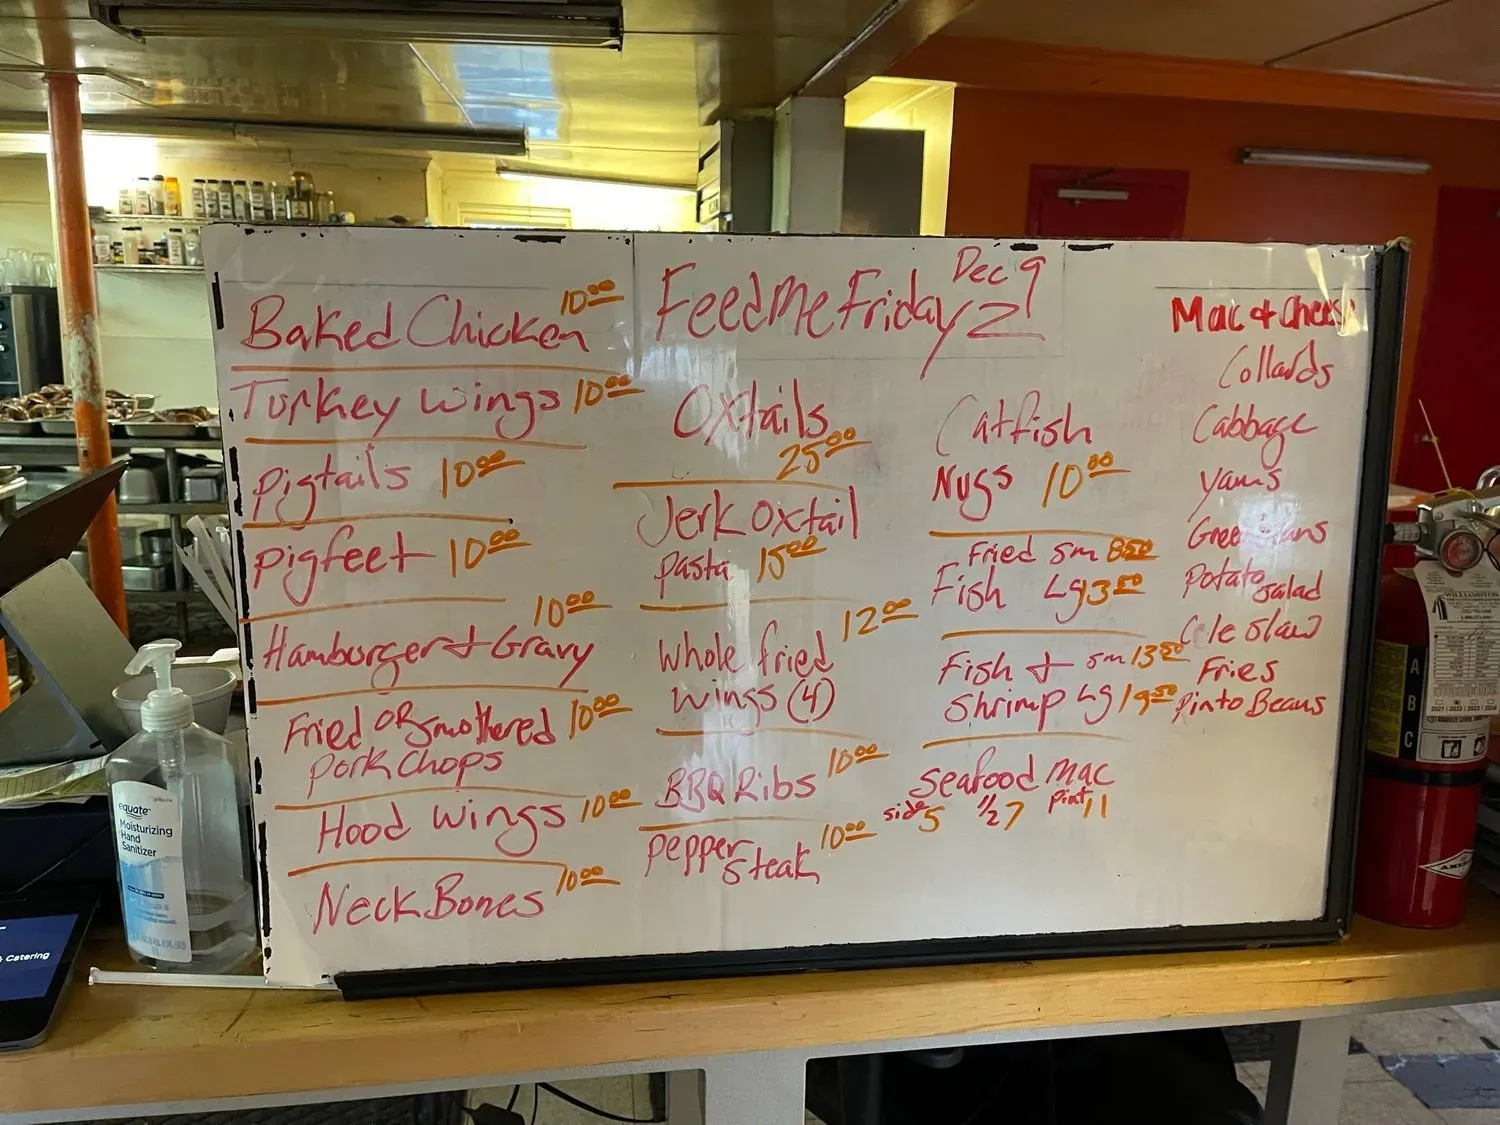 Feed Me Friday Dec 9
Baked Chicken 10.00
Turkey Wings 10.00
Pigtails 10.00
Pigfeet 10.00
Hamburger & Gravy 10.00
Fried OR Smothered 10.00
Pork Chops
Hood Wings 10.00
Neck Bones 10.00
Oxtails
25.00
Jerk Oxtail
Pasta 15.00
Whole fried 12.00
Wings (4)
BBQ Ribs 10.00
Pepper Steak 10.00
Catfish
Nugs 10.00
Fried sm 8.50
Fish Lg 13.50
Fish & sm 13.50
Shrimp Lg 19.50
Seafood Mac
side 5 1/2 7 pint 11
Mac & Cheese
Collards
Cabbage
Yams
Green Beans
Potato Salad
Cole Slaw
Fries
Pinto Beans
equate
Moisturizing
Hand
Sanitizer
Catering
WILLIAMSTON
A
B
C